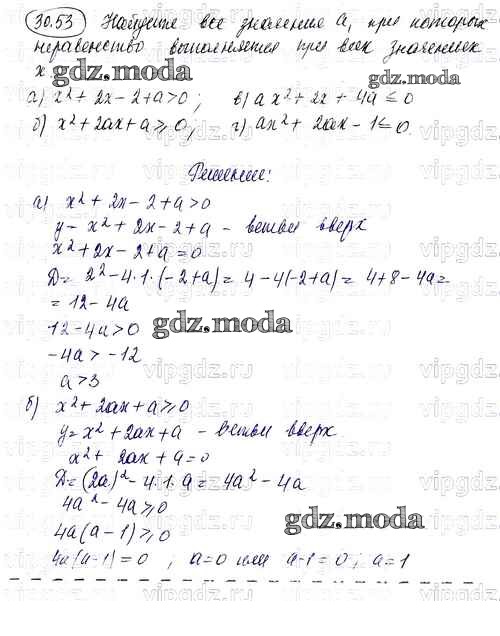 30.53 Найдите все значения a, при которых
неравенство выполняется при всех значениях
x
gdz.moda
gdz.moda
а) x² + 2x - 2 + a > 0; в) ax² + 2x + 4a ≤ 0
б) x² + 2ax + a ≥ 0; г) ax² + 2ax - 1 ≤ 0.
Решение:
а) x² + 2x - 2 + a > 0
y = x² + 2x - 2 + a - ветви вверх
x² + 2x - 2 + a = 0
D = 2² - 4·1·(-2+a) = 4 - 4(-2+a) = 4 + 8 - 4a =
= 12 - 4a
12 - 4a > 0
gdz.moda
-4a > -12
a > 3
б) x² + 2ax + a ≥ 0
y = x² + 2ax + a - ветви вверх.
x² + 2ax + a = 0
D = (2a)² - 4·1·a = 4a² - 4a
4a² - 4a ≥ 0
gdz.moda
4a(a-1) ≥ 0
4a(a-1) = 0 ; a = 0 или a-1 = 0; a = 1
vipgdz.ru